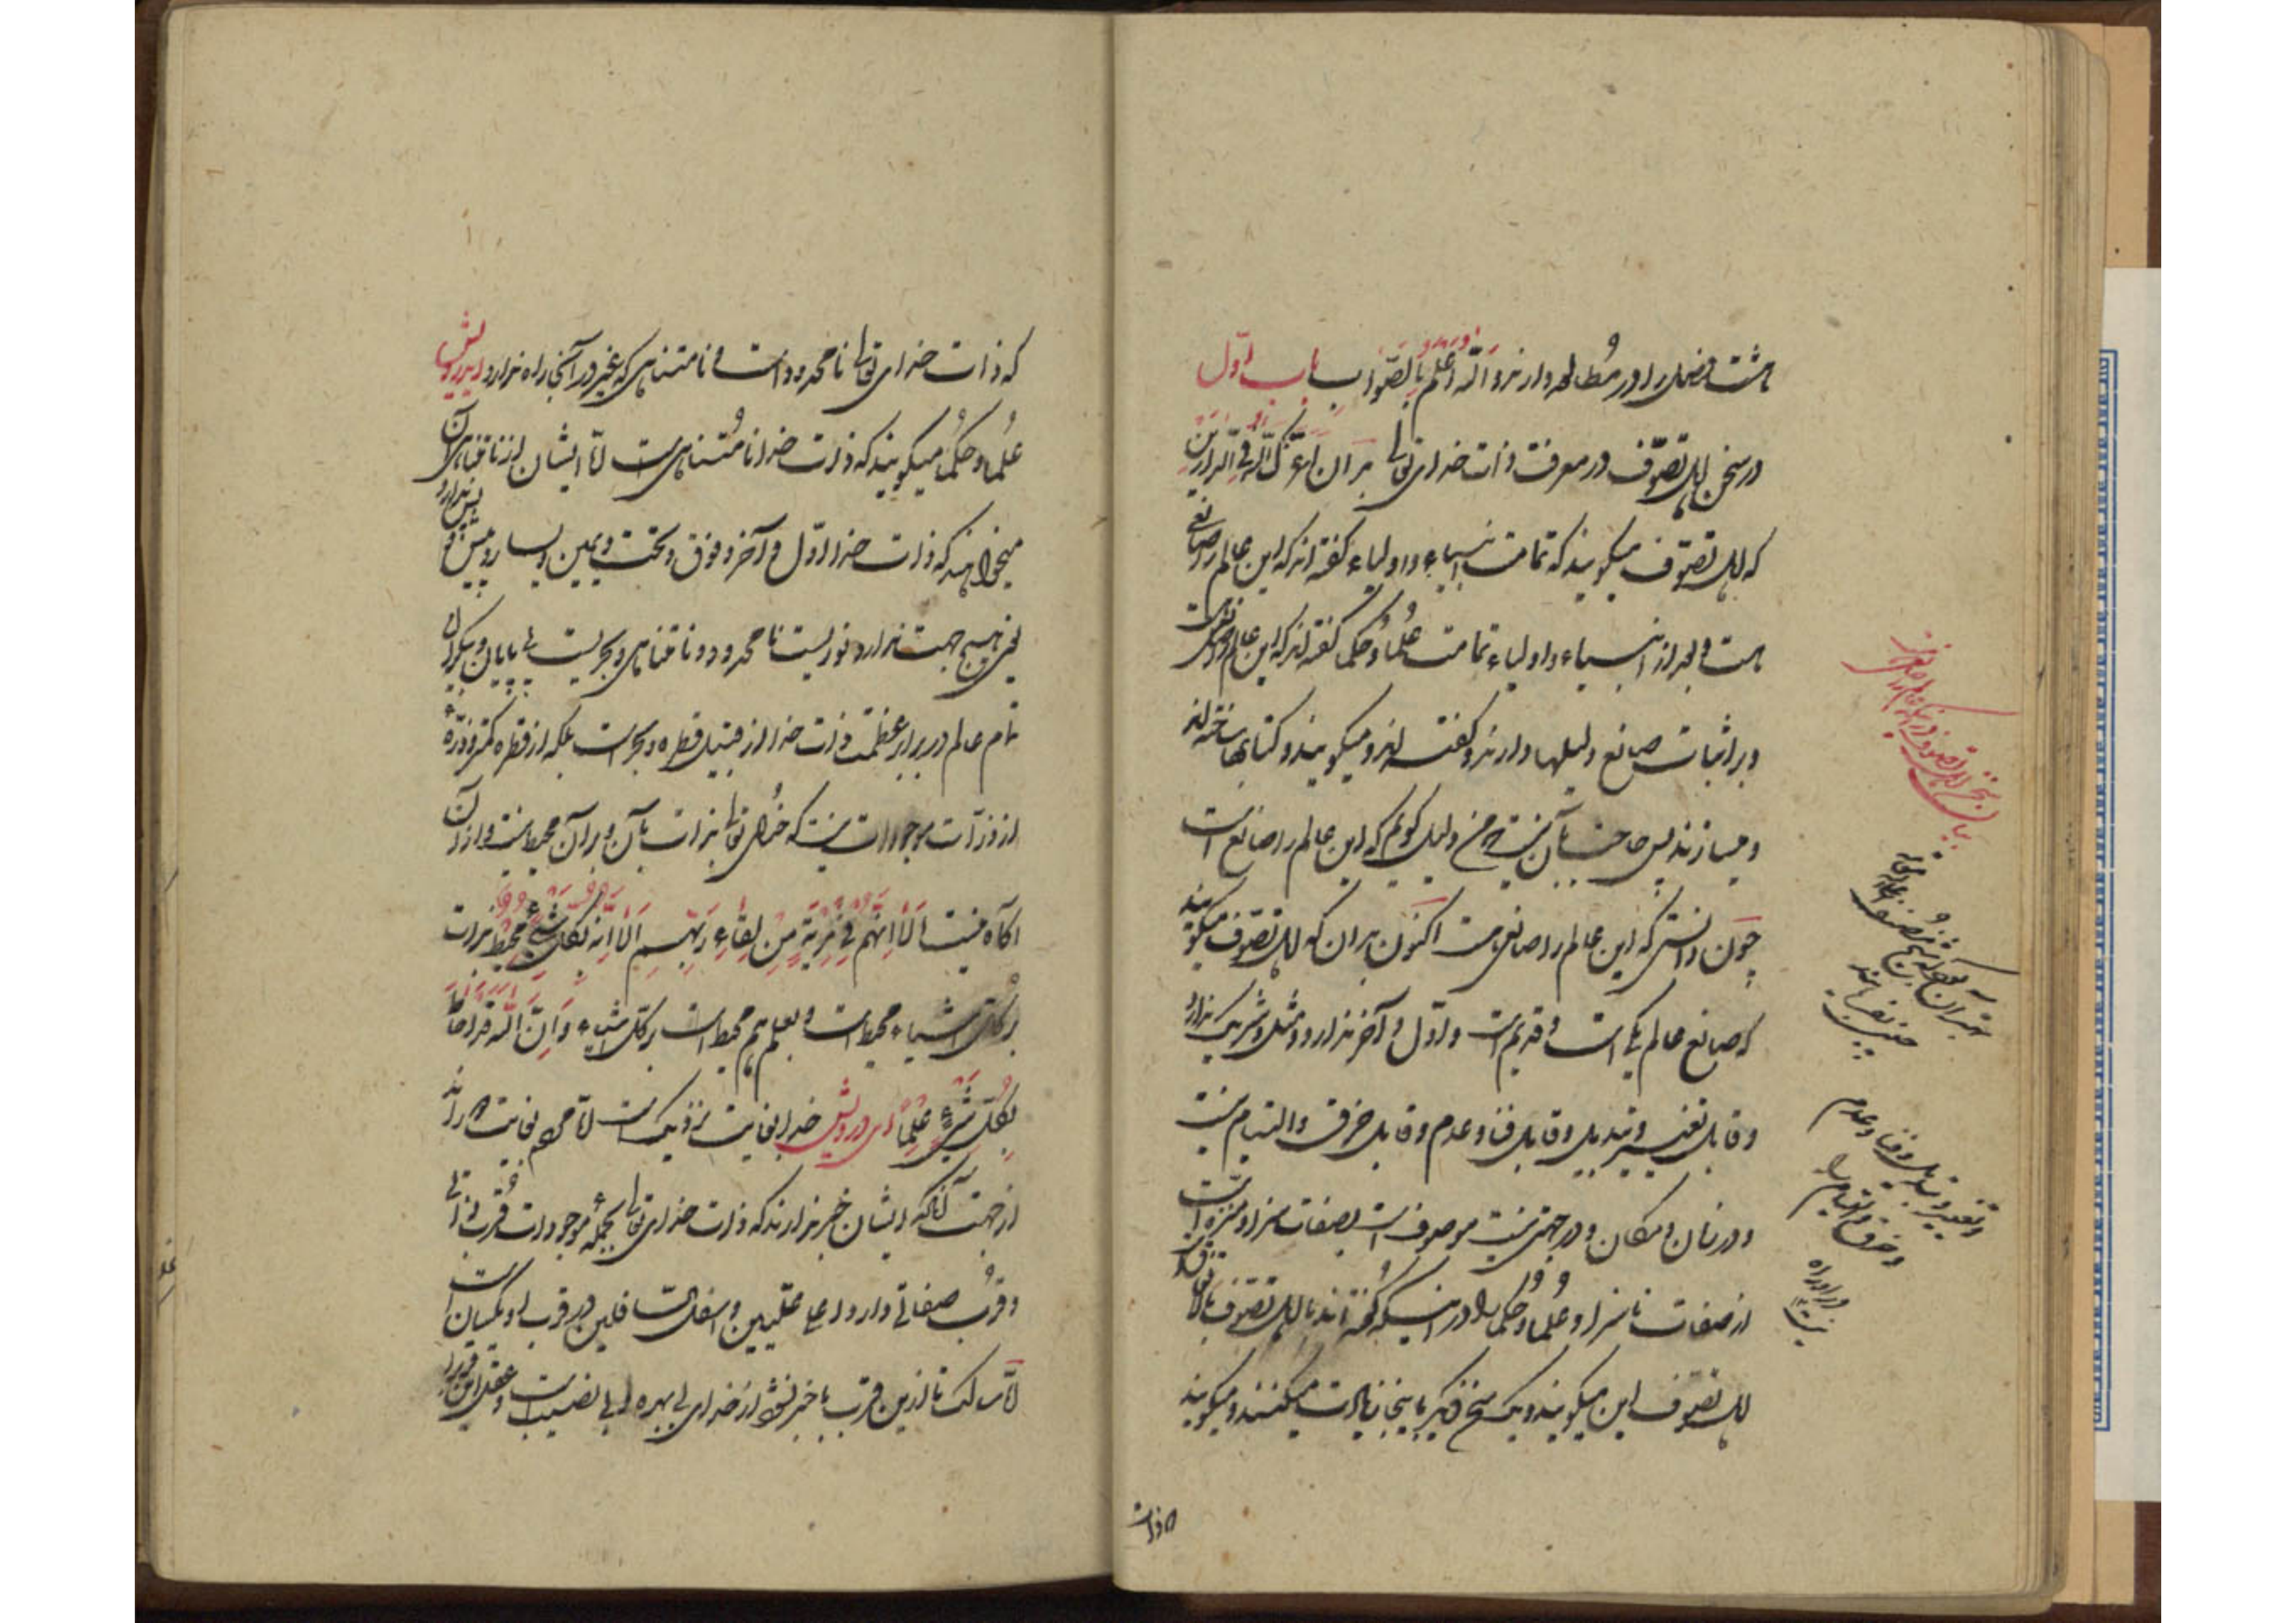 هشت فصل را در مطالعه دارند والله اعلم بالصواب باب اول
در سخن اهل تصوف در معرفت ذات خدای تعالی بدان اعزک الله فی الدارین
که اهل تصوف میگویند که تمامت انبیاء و اولیاء گفته اند که این عالم را صانعی
هست و بعد از انبیاء و اولیاء تمامت علما و حکما گفته اند که این عالم را صانعی هست
و بر اثبات صانع دلیلها دارند و گفته اند و میگویند و کتابها ساخته اند
و میسازند پس حاجت بآن نیست که من دلیل گویم که این عالم را صانع است
چون دانستی که این عالم را صانعی هست اکنون بدان که اهل تصوف میگویند
که صانع عالم یکی است و قدیم است و اول و آخر ندارد و مثل و شریک ندارد
و قابل تغییر و تبدیل و قابل فنا و عدم و قابل خرق و التیام نیست
و در زمان و مکان و در جهتی نیست موصوف است بصفات سزا و منزه است
از صفات ناسزا و علما و حکما در اینکه گفته اند با اهل تصوف اتفاق
اهل تصوف این میگویند و یک سخن دیگر باینجا زیادت میکنند و میگویند
که ذات
بیان سخن اهل تصوف در اینکه عالم را صانعی
چنین میفرمایند
و تغییر و تبدیل و فنا و عدم
و خرق و التیام را
در او راه
نیست
که ذات خدای تعالی نامحدود است و نامتناهی که غیر در آنجا راه ندارد ای درویش
علما و حکما میگویند که ذات خدا نامتناهی است اما ایشان از نامتناهی آن
میخواهند که ذات خدا اول و آخر و فوق و تحت و یمین و یسار و پیش و پس ندارد
یعنی هیچ جهت ندارد نوریست نامحدود و نامتناهی و بحریست بی پایان و بیکران
تمام عالم در برابر عظمت ذات خدا از قبیل قطره و بحر است بلکه از قطره کمتر و ذرهٔ
از ذرات موجودات نیست که خدای تعالی بذات بآن و بر آن محیط نیست و از آن
آگاه نیست الا انهم فی مریة من لقاء ربهم الا انه بکل شیء محیط بذات
بر کل اشیاء محیط است و بعلم هم محیط است بر کل اشیاء و ان الله قد احاط
بکل شیء علما ای درویش خدا بغایت نزدیک است اما مردم بغایت دوراند
از جهت آنکه ایشان خبر ندارند که ذات خدای تعالی بجملهٔ موجودات قرب ذاتی
و قرب صفاتی دارد و اعلی علیین و اسفل السافلین در قرب او یکسان است
اما سالک تا ازین قرب باخبر نشود از خدای بی بهره و بی نصیب است و عقل این